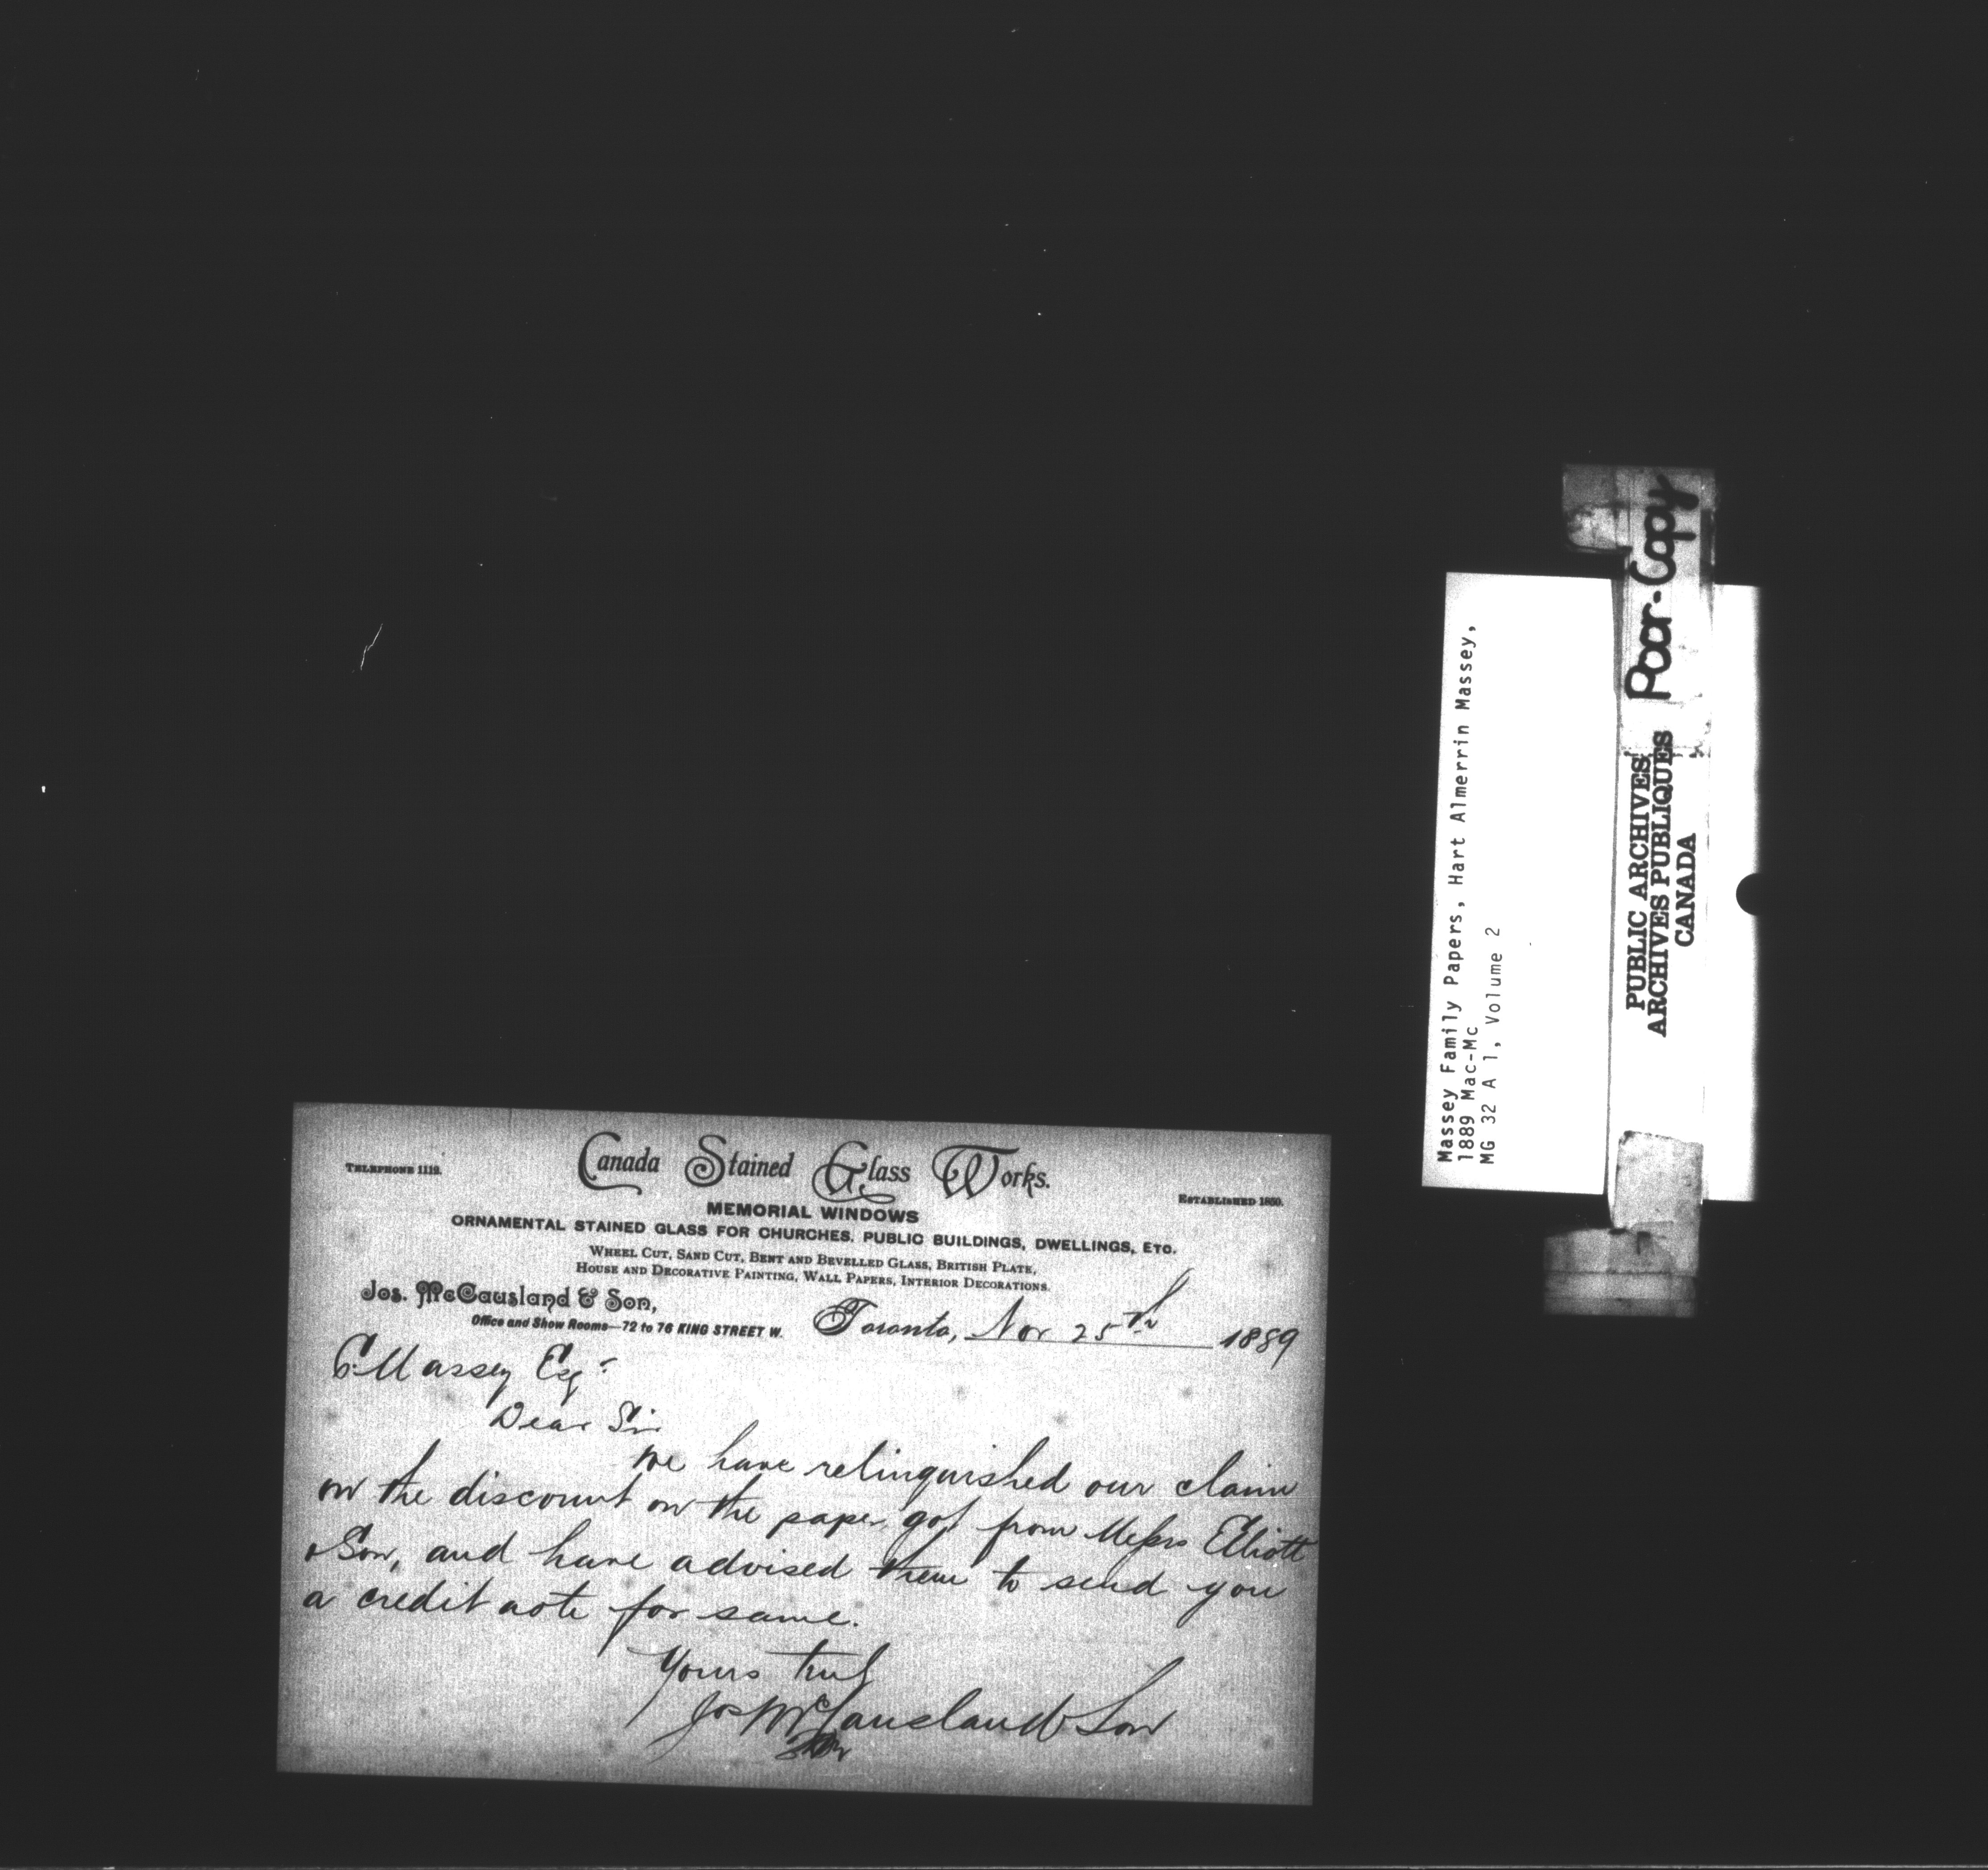 Canada Stained Glass Works.
TELEPHONE 1119.
ESTABLISHED 1850.
MEMORIAL WINDOWS
ORNAMENTAL STAINED GLASS FOR CHURCHES, PUBLIC BUILDINGS, DWELLINGS, ETC.
WHEEL CUT, SAND CUT, BENT AND BEVELLED GLASS, BRITISH PLATE,
HOUSE AND DECORATIVE PAINTING, WALL PAPERS, INTERIOR DECORATIONS.
Jos. McCausland & Son,
Office and Show Rooms—72 to 76 KING STREET W.
Toronto, Nov 25th 1889
Massey Esqr
Dear Sir
We have relinquished our claim
on the discount on the paper got from Messrs Elliott
& Son, and have advised them to send you
a credit note for same.
Yours truly
Jos McCausland & Son
Massey Family Papers, Hart Almerrin Massey,
1889 Mac-Mc
MG 32 A 1, Volume 2
Poor-Copy
PUBLIC ARCHIVES
ARCHIVES PUBLIQUES
CANADA